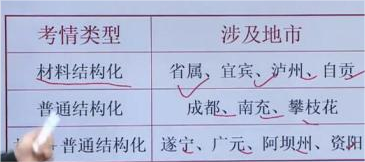 考情类型 涉及地市
材料结构化 省属、宜宾、泸州、自贡
普通结构化 成都、南充、攀枝花
+普通结构化 遂宁、广元、阿坝州、资阳